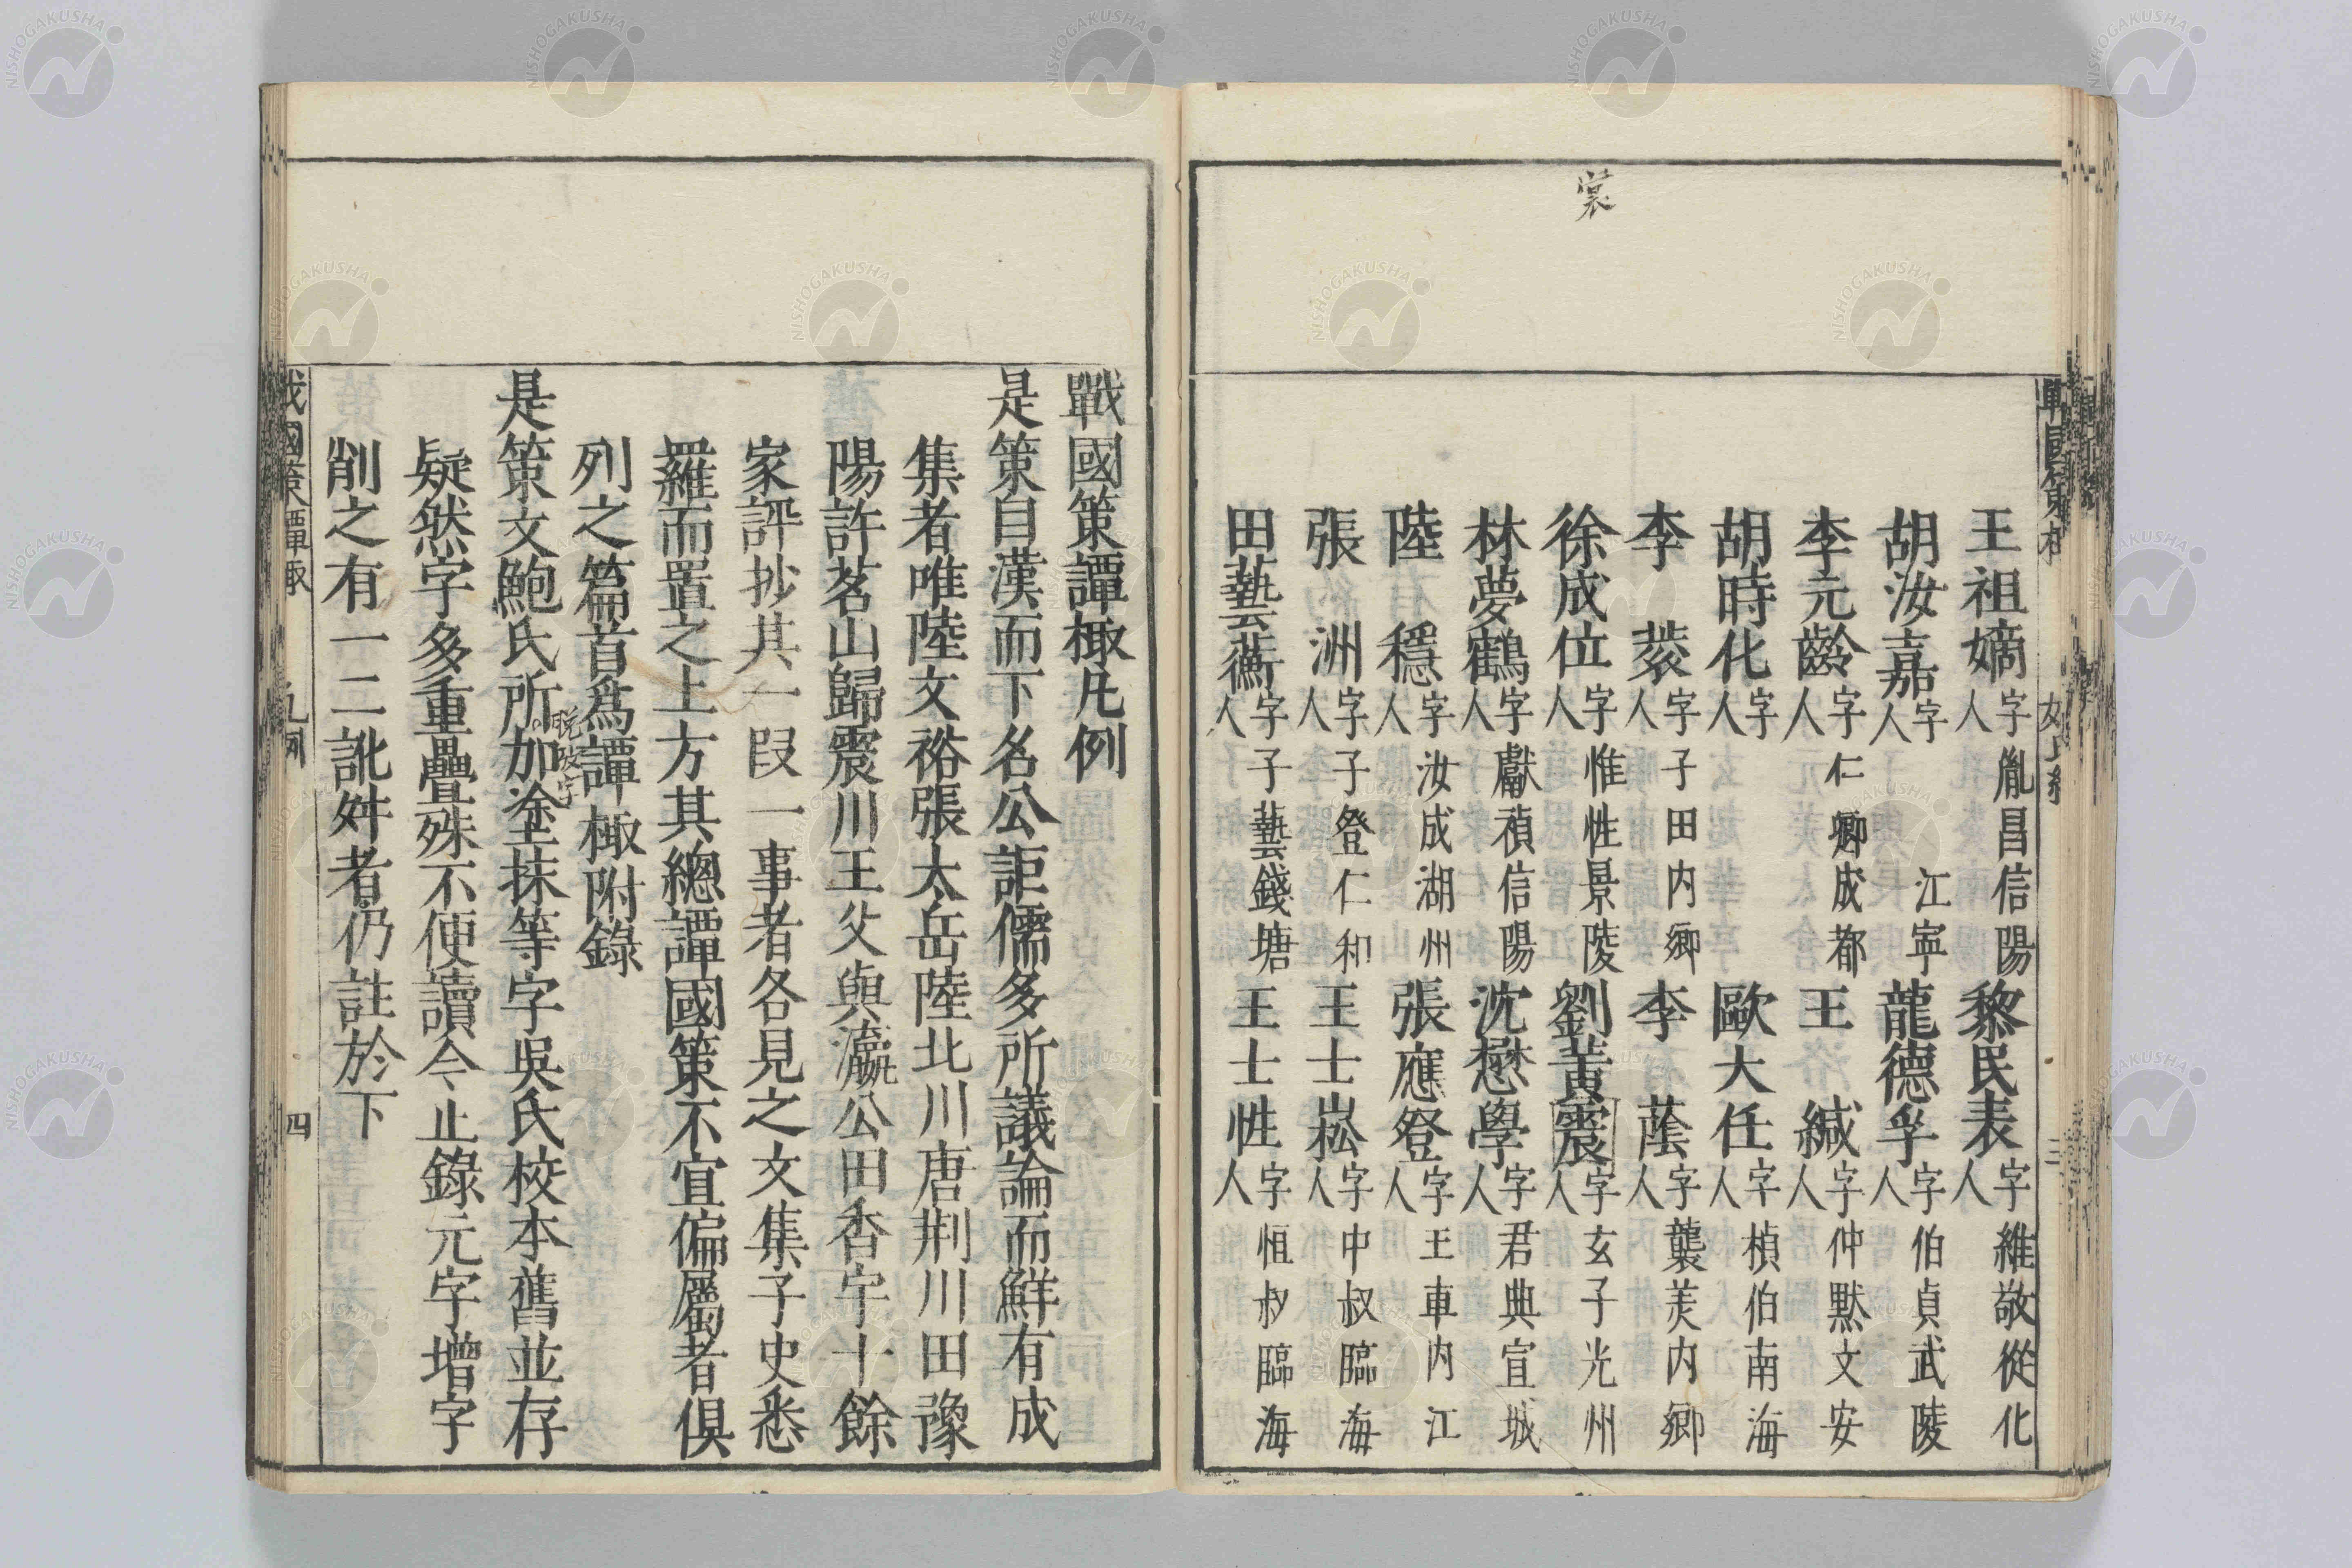 裳
王祖嫡字胤昌信陽人 黎民表字維敬從化人
胡汝嘉字 江寧人 龍德孚字伯貞武陵人
李元齡字仁卿成都人 王 緘字仲默文安人
胡時化字 人 歐大任字楨伯南海人
李 蓘字子田内鄉人 李 蔭字襲美内鄉人
徐成位字惟性景陵人 劉黃震字玄子光州人
林夢鶴字獻禎信陽人 沈懋學字君典宣城人
陸 穩字汝成湖州人 張應登字玉車内江人
張 洲字子登仁和人 王士崧字中叔臨海人
田藝蘅字子藝錢塘人 王士性字恒叔臨海人
戰國策譚棷凡例
是策自漢而下名公詎儒多所議論而鮮有成
集者唯陸文裕張太岳陸北川唐荆川田豫
陽許茗山歸震川王父與瀛公田香宇十餘
家評抄其一段一事者各見之文集子史悉
羅而置之上方其總譚國策不宜偏屬者俱
列之篇首爲譚棷附錄
是策文鮑氏所加塗抹等字吳氏校本舊並存
疑然字多重疊殊不便讀今止錄元字增字
削之有一二訛舛者仍註於下
戰國策譚棷 凡例 四